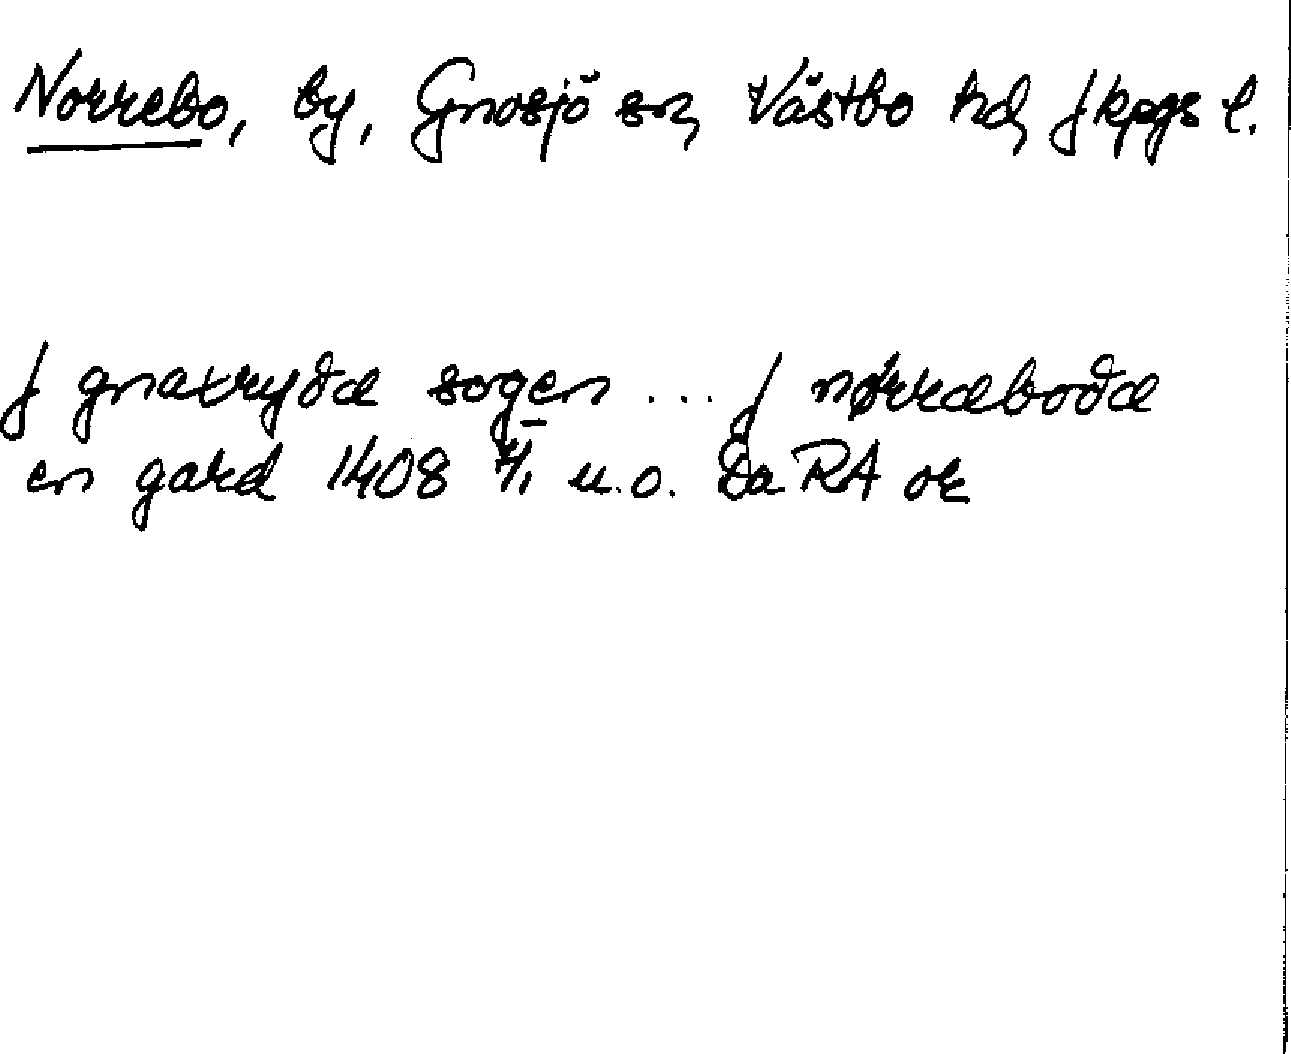 Norrebo, by, Gnosjö sn, Västbo hd, Jkpgs l.
J gnaxryðæ sogen ... J nørræboðæ
en gard 1408 4/1 u.o. Da RA or